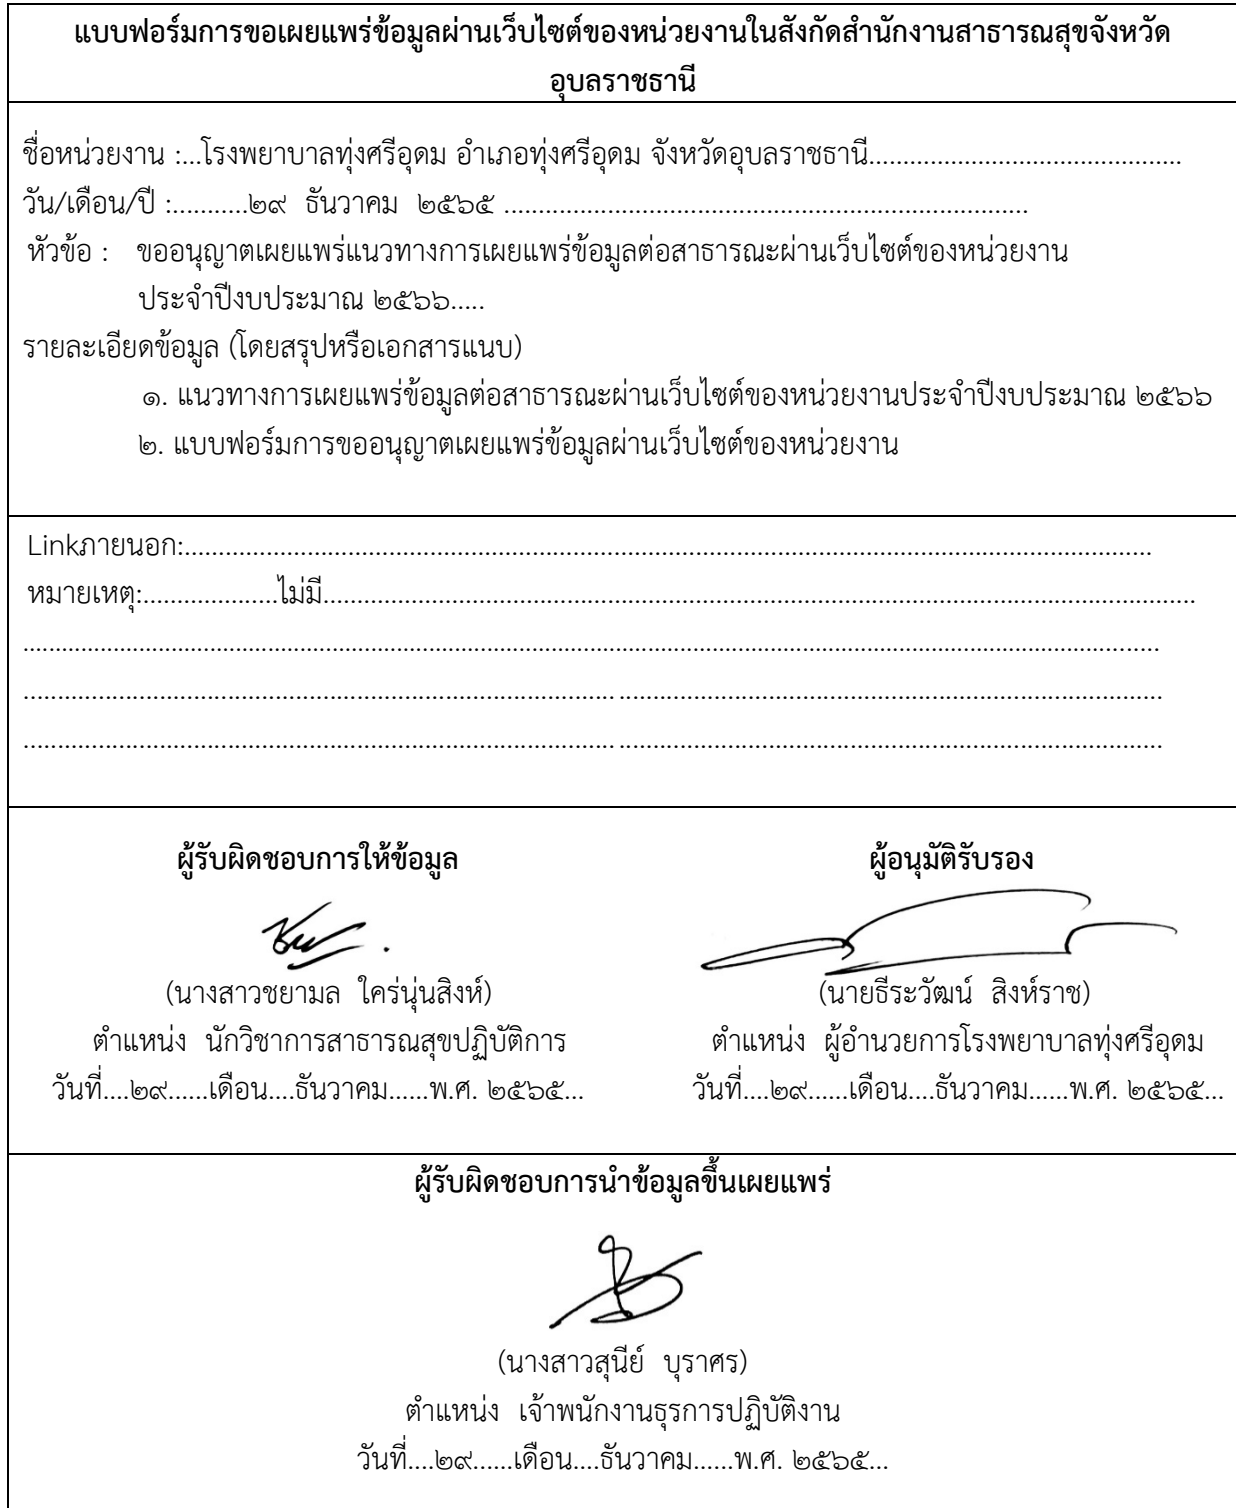 แบบฟอร์มการขอเผยแพร่ข้อมูลผ่านเว็บไซต์ของหน่วยงานในสังกัดสำนักงานสาธารณสุขจังหวัด
อุบลราชธานี
ชื่อหน่วยงาน :...โรงพยาบาลทุ่งศรีอุดม อำเภอทุ่งศรีอุดม จังหวัดอุบลราชธานี..............................................
วัน/เดือน/ปี :...........๒๙ ธันวาคม ๒๕๖๕ .............................................................................
หัวข้อ : ขออนุญาตเผยแพร่แนวทางการเผยแพร่ข้อมูลต่อสาธารณะผ่านเว็บไซต์ของหน่วยงาน
ประจำปีงบประมาณ ๒๕๖๖.....
รายละเอียดข้อมูล (โดยสรุปหรือเอกสารแนบ)
๑. แนวทางการเผยแพร่ข้อมูลต่อสาธารณะผ่านเว็บไซต์ของหน่วยงานประจำปีงบประมาณ ๒๕๖๖
๒. แบบฟอร์มการขออนุญาตเผยแพร่ข้อมูลผ่านเว็บไซต์ของหน่วยงาน
Linkภายนอก:..............................................................................................................................................
หมายเหตุ:....................ไม่มี................................................................................................................................
.......................................................................................................................................................................
....................................................................................... ................................................................................
....................................................................................... ................................................................................
ผู้รับผิดชอบการให้ข้อมูล ผู้อนุมัติรับรอง
(นางสาวชยามล ใคร่นุ่นสิงห์) (นายธีระวัฒน์ สิงห์ราช)
ตำแหน่ง นักวิชาการสาธารณสุขปฏิบัติการ ตำแหน่ง ผู้อำนวยการโรงพยาบาลทุ่งศรีอุดม
วันที่....๒๙......เดือน....ธันวาคม......พ.ศ. ๒๕๖๕... วันที่....๒๙......เดือน....ธันวาคม......พ.ศ. ๒๕๖๕...
ผู้รับผิดชอบการนำข้อมูลขึ้นเผยแพร่
(นางสาวสุนีย์ บุราศร)
ตำแหน่ง เจ้าพนักงานธุรการปฏิบัติงาน
วันที่....๒๙......เดือน....ธันวาคม......พ.ศ. ๒๕๖๕...